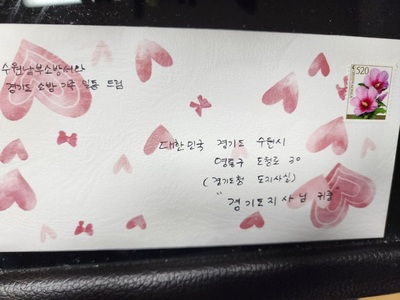 수원남부소방서와
경기도 소방 가족 일동 드림
520
대한민국 경기도 수원시
영통구 도청로 30
(경기도청 도지사실)
"경기도지사님 귀중"